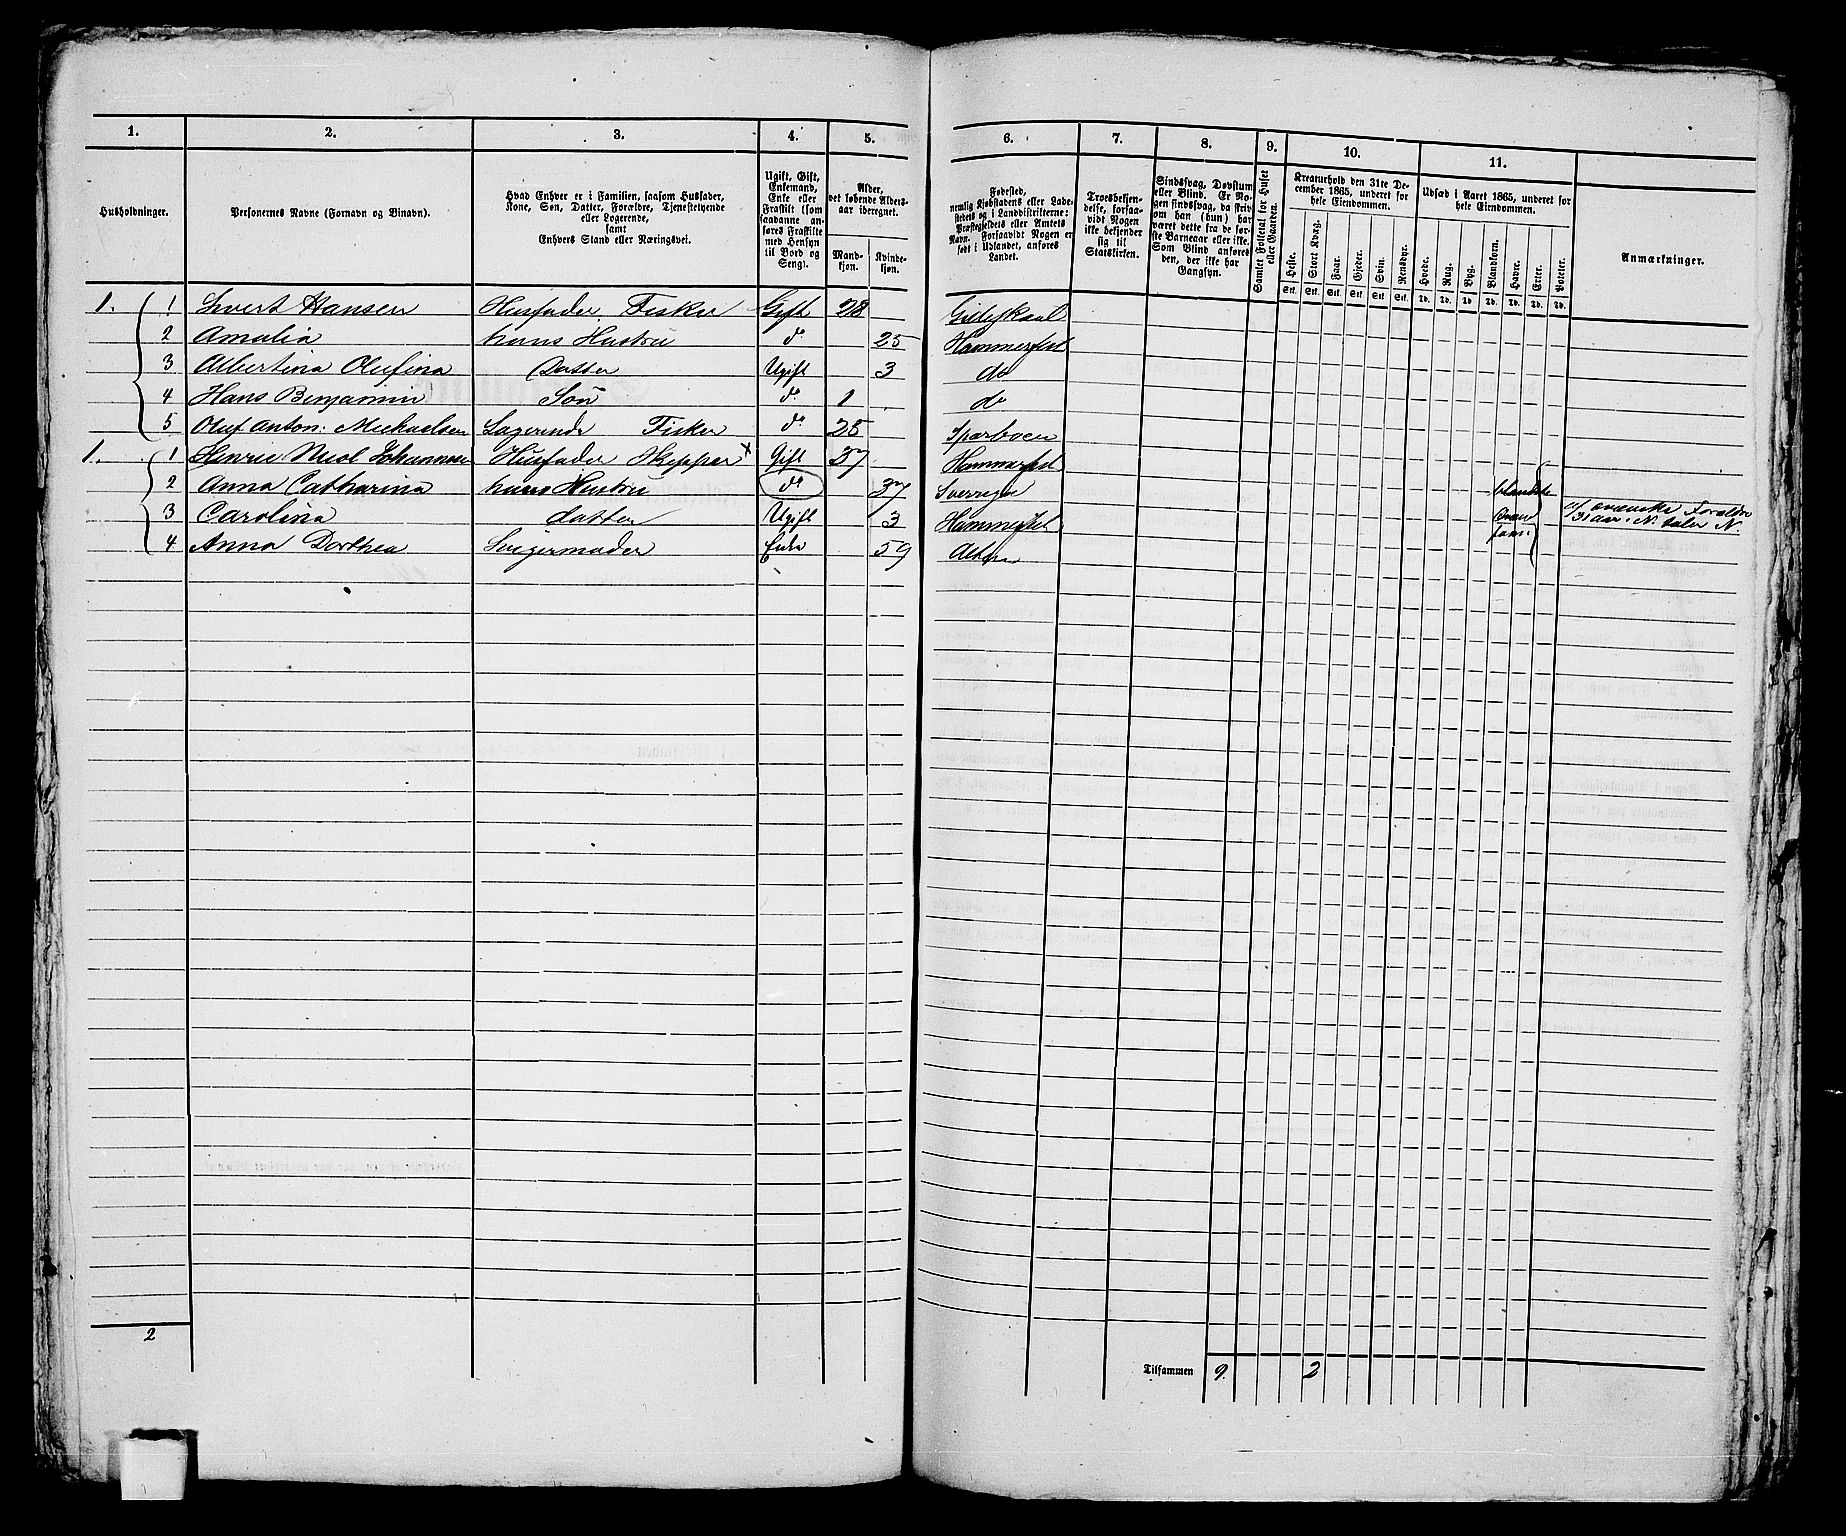 1. 2. 3. 4. 5. 6. 7. 8. 9. 10. 11.
Husholdninger.
Personernes Navne (Fornavn og Binavn).
Hvad Enhver er i Familien, saasom Husfader,
Kone, Søn, Datter, Forældre, Tjenestetyende
eller Logerende,
samt
Enhvers Stand eller Næringsvei.
Ugift, Gift,
Enkemand,
Enke eller
Fraskilt (som
saadanne an-
føres Fraskilte
med Hensyn
til Bord og
Seng).
Alder,
det løbende Alders-
aar iberegnet.
Mand-
kjøn.
Kvinde-
kjøn.
Fødested,
nemlig Kjøbstadens eller Lade-
stedets og i Landdistrikterne:
Præstegjeldets eller Amtets
Navn. Forsaavidt Nogen er
født i Udlandet, anføres
Landet.
Troesbekjen-
delse, forsaa-
vidt Nogen
ikke bekjender
sig til
Statskirken.
Sindssvag, Døvstum
eller Blind. Er No-
gen sindssvag, da skriv
om han (hun) har
været dette fra de før-
ste Barneaar eller ikke.
Som Blind anføres
den, der ikke har
Gangsyn.
Samlet Folketal for Huset
eller Gaarden.
Kreaturhold den 31te De-
cember 1865, underet for
hele Eiendommen.
Heste. Stort Kvæg. Faar. Gjeder. Svin. Rensdyr.
Stk. Stk. Stk. Stk. Stk. Stk.
Udsæd i Aaret 1865, underet for
hele Eiendommen.
Hvede. Rug. Byg. Blandkorn. Havre. Erter. Poteter.
Td. Td. Td. Td. Td. Td. Td.
Anmærkninger.
1. 1 Hansen Husfader, Fisker Gift 28
2 Amalia hans Hustru do 25 Hammerfest
3 Albertina Olufina Datter Ugift 3 do
4 Hans Benjamin Søn do 1 do
5 Oluf Anton: Michaelsen Logerende Fisker do 25
1. 1 Johannesen Husfader Skipper x Gift 37 Hammerfest
2 Anna Catharina hans Hustru do 37 Sverrige
3 Carolina datter Ugift 3 Hammerfest
4 Anna Dorthea Svigermoder Enke 59 Alten
2
Tilsammen 9. 2